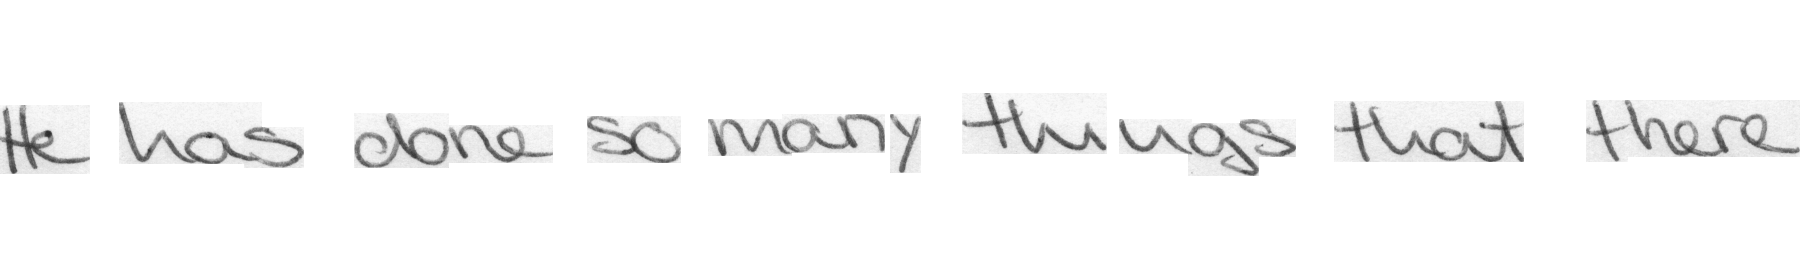 He has done so many things that there